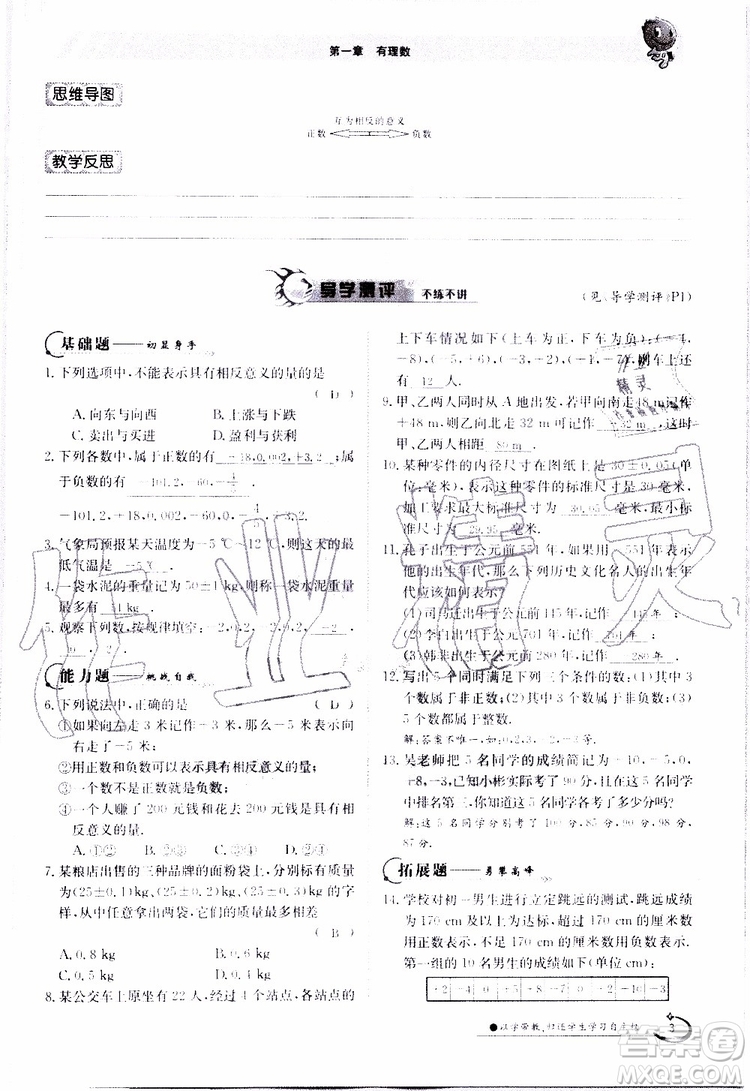 第一章 有理数
思维导图
互为相反的意义
正数 负数
教学反思
导学测评 不练不讲
(见《导学测评》P1)
基础题——初显身手
1. 下列选项中,不能表示具有相反意义的量的是
( D )
A. 向东与向西 B. 上涨与下跌
C. 卖出与买进 D. 盈利与获利
2. 下列各数中,属于正数的有 +18,0.002,+3.2 ;属
于负数的有
-101.2,+18,0.002,-60,0,
3. 气象局预报某天温度为-5 ℃~12℃,则该天的最
低气温是 -5℃
4. 一袋水泥的重量记为50±1 kg,则称一袋水泥重量
最多
5. 观察下列数,按规律填空:-2,0,2,
能力题——挑战自我
6. 下列说法中,正确的是 ( D )
①如果向左走3米记作+3米,那么-5米表示向
右走了-5米;
②用正数和负数可以表示具有相反意义的量;
③一个数不是正数就是负数;
④一个人赚了200元钱和花去200元钱是具有相
反意义的量.
A. ①② B. ②③ C. ①③ D. ②④
7. 某粮店出售的三种品牌的面粉袋上,分别标有质量为
(25±0.1)kg,(25±0.2)kg,(25±0.3)kg的
字样,从中任意选出两袋,它们的质量最多相差
( B )
A. 0.8 kg B. 0.6 kg
C. 0.5 kg D. 0.4 kg
8. 某公交车上原坐有22人,经过4个站点,各站点的
上下车情况如下(上车为正,下车为负):
-8),(-5,+6),则车上还
有 12 人.
9. 甲、乙两人同时从A地出发,若甲向南走48 m记作
+48 m,则乙向北走32 m记作 -32 m ,这时
甲、乙两人相距 80 m .
10. 某种零件的内径尺寸在图纸上是30±0.05(单
位:毫米),表示这种零件的标准尺寸是30毫米,
加工要求最大尺寸为 30.05 毫米,最小尺寸
为 29.95 毫米.
11. 孔子出生于公元前551年,用-551年表示出生
年代,那么下列历史文化名人的出生年
代应该如何表示?
(1)司马迁出生于公元前145年,记作 -145年 ;
(2)李白出生于公元701年,记作
(3)韩非出生于公元前280年,记作 -280年 .
12. 写出5个同时满足下列三个条件的数:(1)其中3
个数属于非正数;(2)其中3个数属于非负数;(3)
5个数都属于整数.
解:答案不唯一,如:0,2,3,-2,-3.
13. 吴老师把5名同学的成绩简记为-10,-5,0,
+8,-3,已知小彬实际考了90分,且在5名同学
中排名第三,你知道这5名同学各考了多少分吗?
解:这5名同学分别考了
拓展题——勇攀高峰
14. 学校对初一男生进行立定跳远的测试,跳远成绩
为170 cm及以上为达标,超过170 cm的厘米数
用正数表示,不足170 cm的厘米数用负数表示.
第一组的10名男生的成绩如下(单位cm):
+2 -4 0 +5 +8 -7 0 +2 -10 -3
●以学带教,归还学生学习自主权
3
作业精灵
答案圈
MXQE.COM